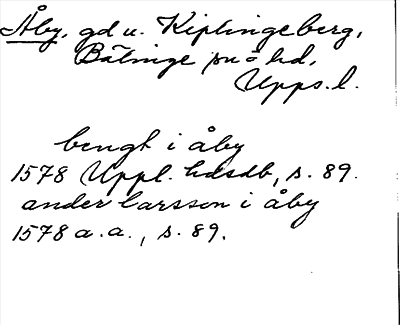 Åby, gd u. Kiplingeberg,
Bälinge sn o hd,
Upps. l.
bengt i åby
1578 Uppl. hdsdb, s. 89.
ander larsson i åby
1578 a. a., s. 89.